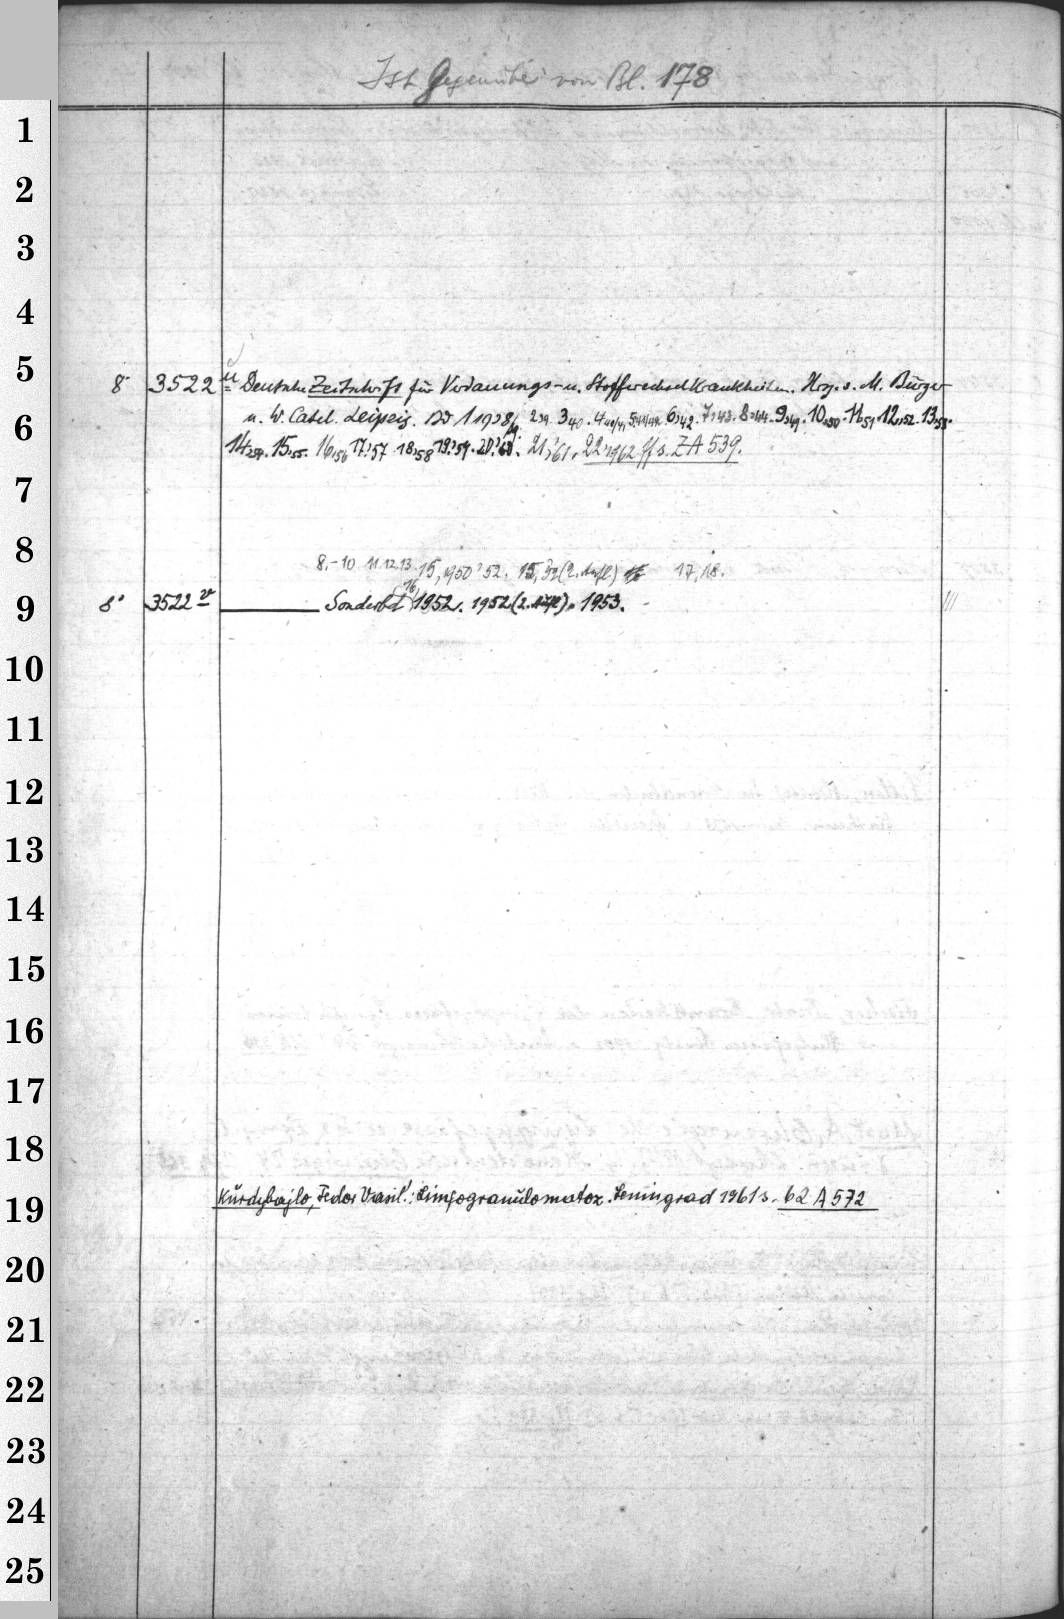 Ist Gegenüber von Bl. 178
1
2
3
4
5
8° 3522 u Deutsche Zeitschrift für Verdauungs- u. Stoffwechselkrankheiten. Hrsg. v. M. Bürger
6
u. W. Catel. Leipzig. Bd 1 1938/9. 2,39. 3,40. 4,40/41. 5,41/42. 6,42. 7,43. 8,44. 9,49. 10,50. 11,51. 12,52. 13,53.
14,54. 15,55. 16,56 17,'57 18,58 19,'59. 20,'60. 21,'61. 22,1962 ff s. ZA 539.
7
8
8.-10 11.12.13. 15, 1950 '52. 15, 52 (2. Aufl.) 17, 18.
16,
9
8° 3522 v Sonderbd 1952. 1952 (2. Aufl). 1953.
10
11
12
13
14
15
16
17
18
19
Kurdybajlo, Fedor Vasil': Limfogranulomatoz. Leningrad 1961 s. 62 A 572
20
21
22
23
24
25